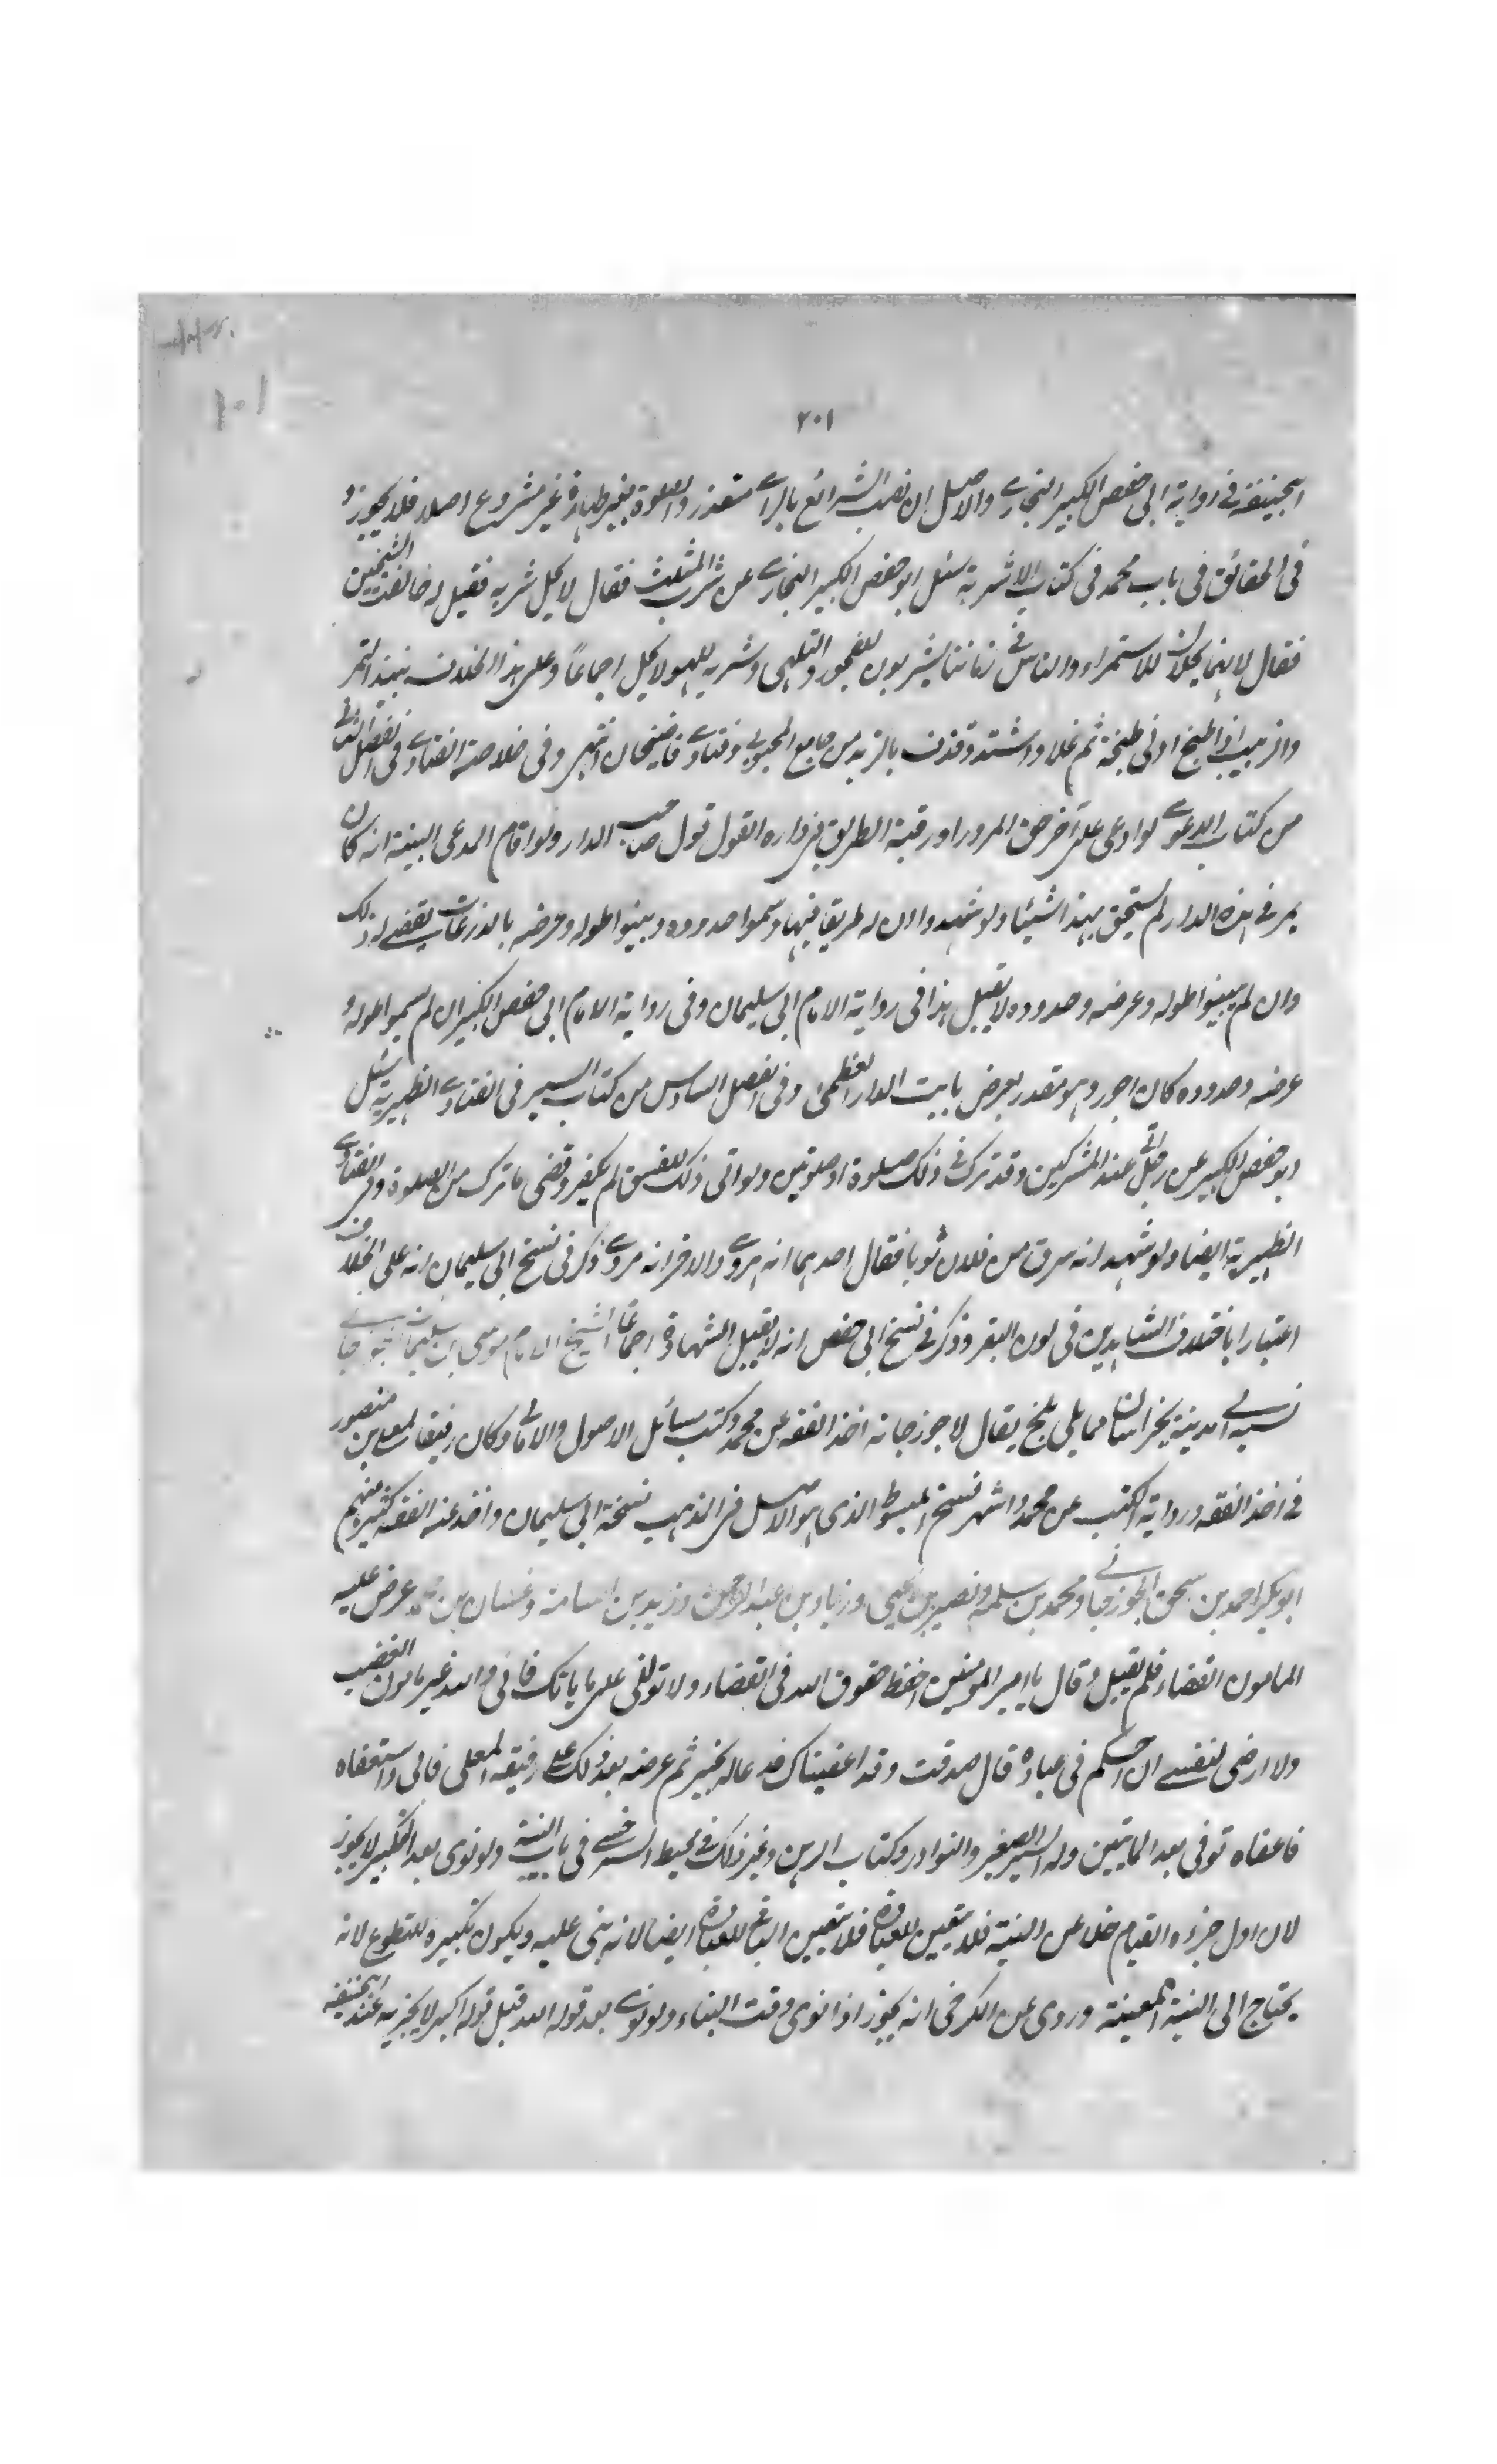 ٢٠١
ابيحنيفة فى رواية ابى حفص الكبير البخارى والاصل ان نصب الشرائع بالراى متعذر والصلوة بغير طهارة غير مشروع اصلا فلا يجوز و
فى الحقائق فى باب محمد فى كتاب الاشربة سئل ابو حفص الكبير البخارى عن شرب المثلث فقال لا يحل شربه فقيل له خالفت الشيخين
فقال لا انهما يحلان للاستمراء والناس فى زماننا يشربون للفجور والتلهى وشربه للهو لا يحل اجماعا وعلى هذا الخلاف نبيذ التمر
والزبيب اذا طبخ ادنى طبخة ثم غلا واشتد وقذف بالزبد من جامع المحبوبى وفتاوى قاضيخان انتهى وفى خلاصة الفتاوى فى الفصل الثانى
من كتاب الدعوى لو ادعى على آخر حق المرور او رقبة الطريق فى داره القول قول صاحب الدار ولو اقام المدعى البينة انه كان
يمر فى هذه الدار لم يستحق بهذا شيئا ولو شهدوا ان له طريقا فيها وسموا حدوده وبينوا طوله وعرضه بالذرعات يقضى له ذلك
وان لم يبينوا طوله وعرضه وحدوده لا يقبل هذا فى رواية الامام ابى سليمان وفى رواية الامام ابى حفص الكبير ان لم يسموا طوله و
عرضه وحدوده كان اجور وهو مقدر بعرض باب الدار العظمى وفى الفصل السادس من كتاب السير فى الفتاوى الظهيرية سئل
ابو حفص الكبير عن رجل اتى عند المشركين وقد ترك فى ذلك صلوة او صلوتين ولو اتى ذلك للفسق لم يكفر وقضى ما ترك من الصلوة وفى الفتاوى
الظهيرية ايضا ولو شهد انه سرق من فلان ثوبا فقال احدهما انه هروى والاخر انه مروى ذكر فى نسخ ابى سليمان انه على الخلاف
اعتبارا باختلاف الشاهدين فى لون البقر وذكر فى نسخ ابى حفص انه لا يقبل الشهادة اجماعا الشيخ الامام موسى بن سليمان الجوزجانى
نسبة الى مدينة بخراسان مما يلى بلخ يقال لا جوزجانه اخذ الفقه عن محمد وكتب مسائل الاصول والامالى وكان رفيقا لمعلى بن منصور
فى اخذ الفقه ورواية الكتب عن محمد واشهر نسخ المبسوط الذى هو الاصل فى المذهب نسخة ابى سليمان واخذ عنه الفقه كثير منهم
ابو بكر احمد بن اسحق الجوزجانى ومحمد بن سلمة ونصير بن يحيى وزياد بن عبد الرحمن وزيد بن اسامة وغسان بن محمد عرض عليه
المامون القضاء فلم يقبل وقال يا امير المؤمنين احفظ حقوق الله فى القضاء ولا تولنى على اماناتك فانى والله غير مامون الغضب
ولا ارضى لنفسى ان احكم فى عباده قال صدقت وقد اعفيناك فدعا له بخير ثم عرضه بعد ذلك على رفيقه المعلى فابى واستعفاه
فاعفاه توفى بعد المايتين وله السير الصغير والنوادر وكتاب الرهن وغير ذلك فى محيط السرخسى فى باب النية ولو نوى بعد التكبير لا يجوز
لان اول جزؤه القيام خلا عن النية فلا يتعين للعبادة فلا يتعين الباقى للعبادة ايضا لانه بنى عليه ويكون تكبيره للتطوع لانه
يحتاج الى النية المعينة وروى عن الكرخى انه يجوز اذا نوى وقت الثناء ولو نوى بعد قوله الله قبل قوله اكبر لا يجزيه عند ابيحنيفه